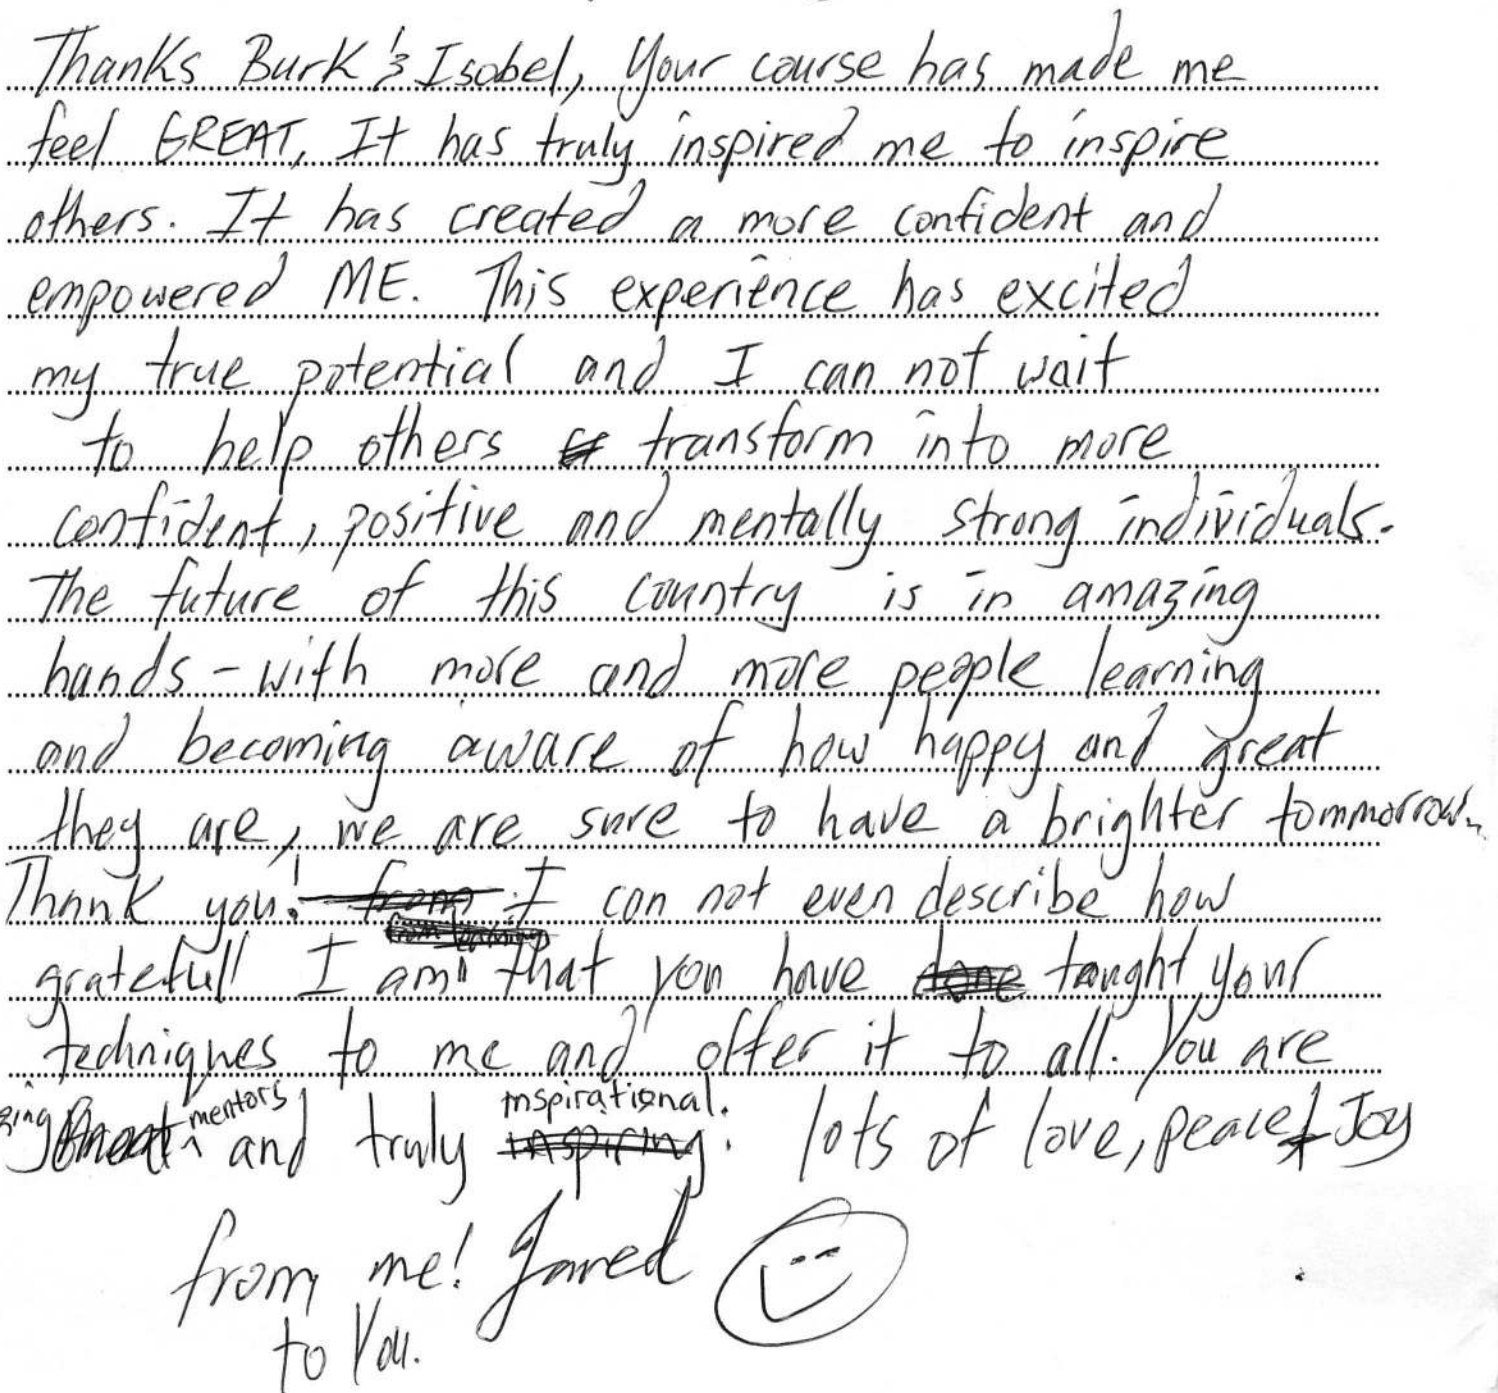 Thanks Burk & Isobel, Your course has made me
feel GREAT, It has truly inspired me to inspire
others. It has created a more confident and
empowered ME. This experience has excited
my true potential and I can not wait
to help others transform into more
confident, positive and mentally strong individuals.
The future of this country is in amazing
hands - with more and more people learning
and becoming aware of how happy and great
they are, we are sure to have a brighter tommorrow.
Thank you! I can not even describe how
gratefull I am that you have taught your
techniques to me and offer it to all. You are
mentors and truly inspirational. lots of love, peace & Joy
from me! Jared
to You.